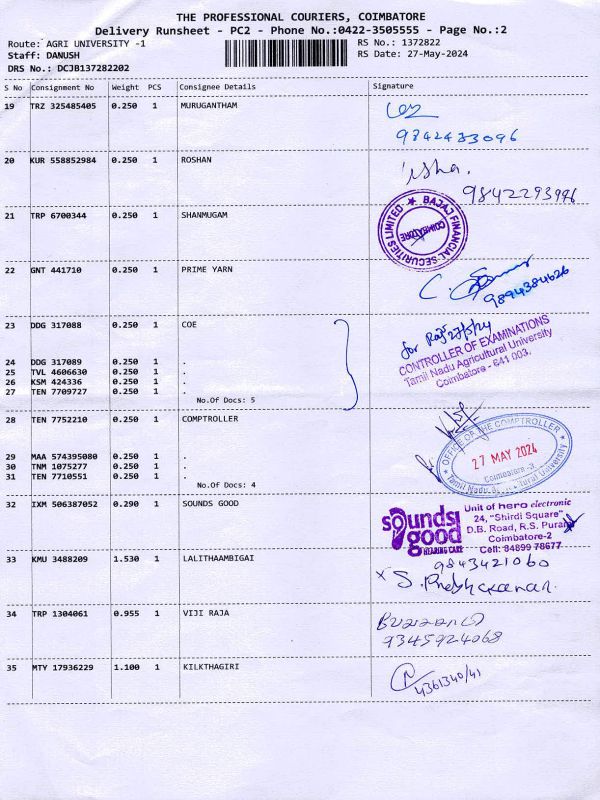 THE PROFESSIONAL COURIERS, COIMBATORE
Delivery Runsheet - PC2 - Phone No.:0422-3505555 - Page No.:2
Route: AGRI UNIVERSITY -1
RS No.: 1372822
Staff: DANUSH
RS Date: 27-May-2024
DRS No.: DCJB137282202
S No Consignment No Weight PCS Consignee Details Signature
19 TRZ 325485405 0.250 1 MURUGANTHAM
9842433096
20 KUR 558852984 0.250 1 ROSHAN
9842293996
21 TRP 6700344 0.250 1 SHANMUGAM
BAJAJ FINANCIAL SECURITIES LIMITED
COIMBATORE
22 GNT 441710 0.250 1 PRIME YARN
9894384626
23 DDG 317088 0.250 1 COE
for 27/5/24
CONTROLLER OF EXAMINATIONS
Tamil Nadu Agricultural University
Coimbatore - 641 003.
24 DDG 317089 0.250 1 .
25 TVL 4606630 0.250 1 .
26 KSM 424336 0.250 1 .
27 TEN 7709727 0.250 1 .
No.Of Docs: 5
28 TEN 7752210 0.250 1 COMPTROLLER
OFFICE OF THE COMPTROLLER
27 MAY 2024
Coimbatore-3.
Tamil Nadu Agricultural University
29 MAA 574395080 0.250 1 .
30 TNM 1075277 0.250 1 .
31 TEN 7710551 0.250 1 .
No.Of Docs: 4
32 IXM 506387052 0.290 1 SOUNDS GOOD
sounds good
HEARING CARE
Unit of hero electronic
24, "Shirdi Square"
D.B. Road, R.S. Puram
Coimbatore-2
Cell: 84899 78677
33 KMU 3488209 1.530 1 LALITHAAMBIGAI
9843421060
x S. Prabhakaran.
34 TRP 1304061 0.955 1 VIJI RAJA
9345924068
35 MTY 17936229 1.100 1 KILKTHAGIRI
4361340/41